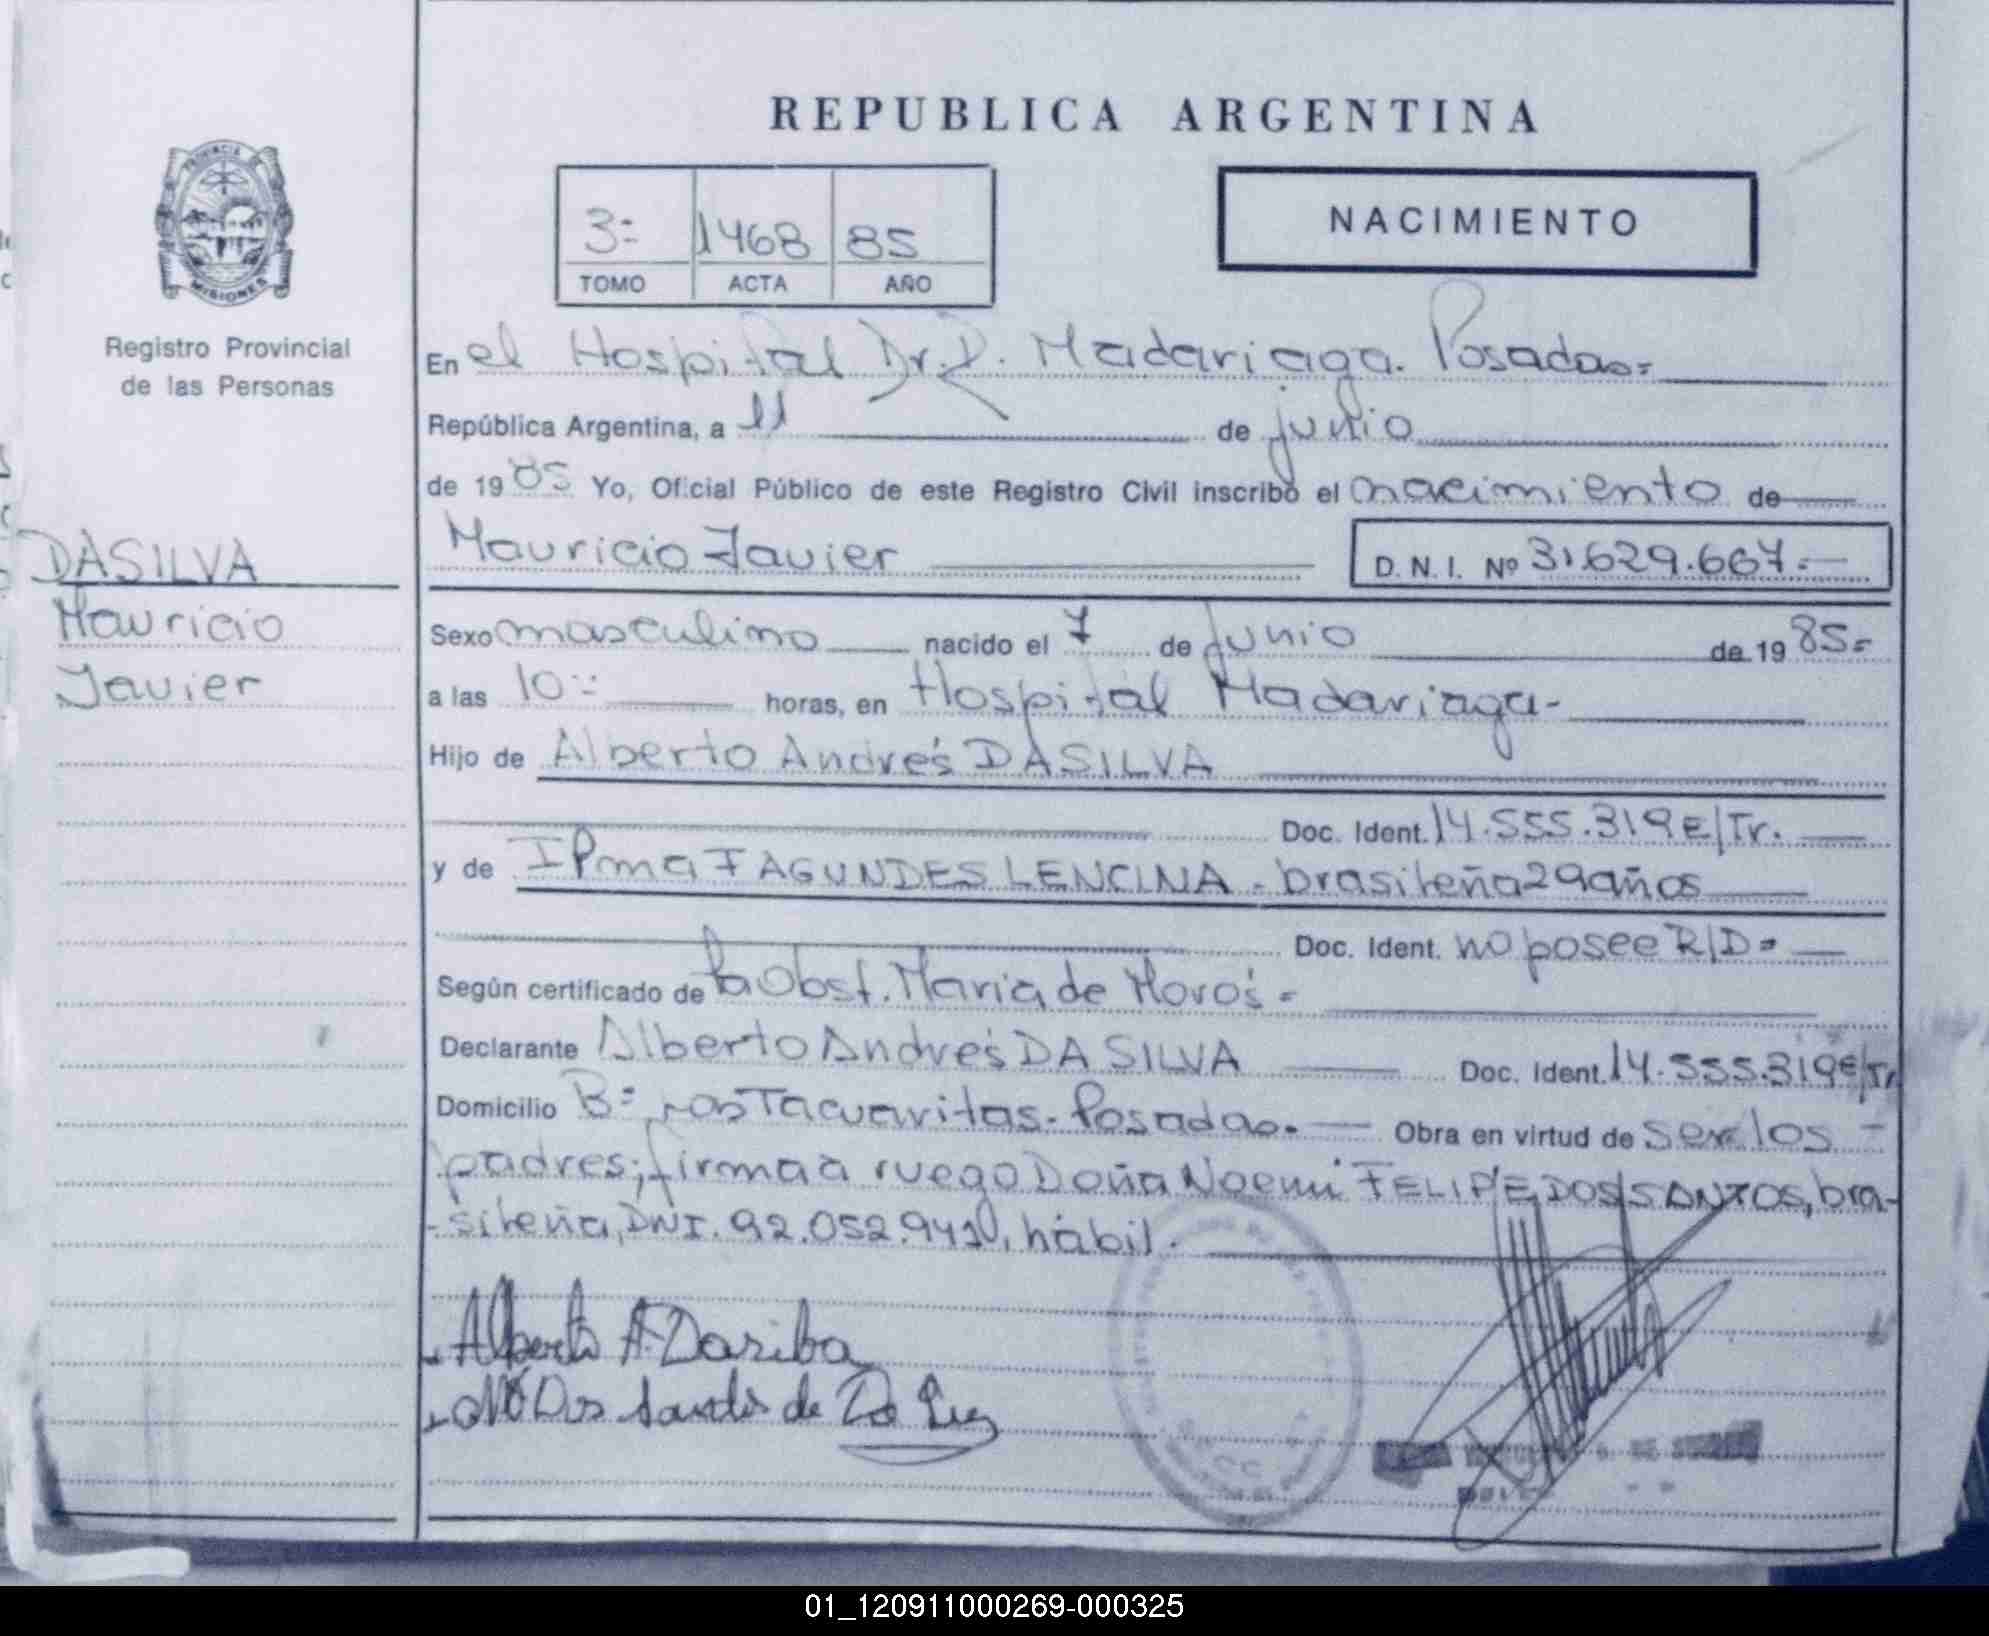 REPUBLICA ARGENTINA
PROVINCIA DE
MISIONES
Registro Provincial
de las Personas
3= 1468 85
TOMO ACTA AÑO
NACIMIENTO
En el Hospital Dr. R. Madariaga. Posadas=
República Argentina, a 11 de junio
de 1985 Yo, Oficial Público de este Registro Civil inscribo el nacimiento de
DASILVA
Mauricio
Javier
Mauricio Javier D. N. I. Nº 31.629.667.-
Sexo masculino nacido el 7 de junio de 1985=
a las 10 horas, en Hospital Madariaga-
Hijo de Alberto Andrés DASILVA
Doc. Ident. 14.555.319 E/Tr.
y de Irma FAGUNDES LENCINA - brasileña 29 años
Doc. Ident. no posee R/D=
Según certificado de la Obst. Maria de Moros=
Declarante Alberto Andrés DA SILVA Doc. Ident. 14.555.319 E/Tr
Domicilio Bº Los Tacuaritas- Posadas. Obra en virtud de ser los -
padres; firma a ruego Doña Noemi FELIPE DOS SANTOS, bra-
-sileña, DNI. 92.052.940, hábil.
Alberto A. Dasilva
Dos Santos de Da Luz
01_120911000269-000325